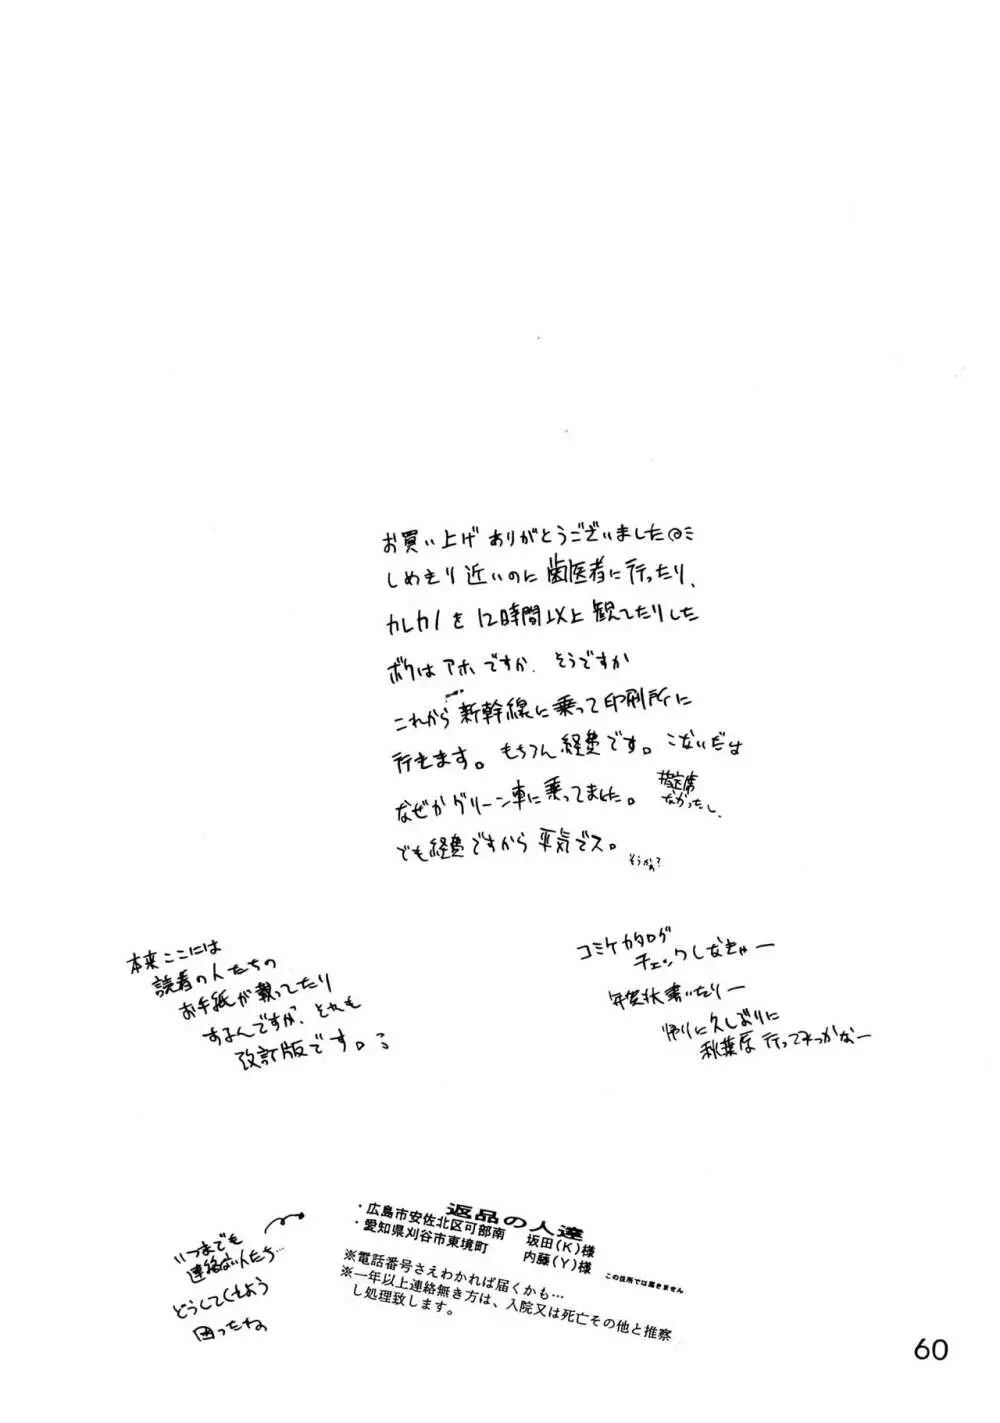 お買い上げありがとうございました@ミ
しめきり近いのに歯医者に行ったり、
カレカノを12時間以上観てたりした
ボクはアホですか、そうですか
これから新幹線に乗って印刷所に
行きます。もちろん経費です。こないだは
なぜかグリーン車に乗ってました。
指定席
なかったし、
でも経費ですから平気でス。
そうかぁ?
本来ここには
読者の人たちの
お手紙が載ってたり
するんですが、それも
改訂版です。
コミケカタログ
チェックしなきゃー
年賀状書いたりー
帰りに久しぶりに
秋葉原行ってみっかなー
いつまでも
連絡ない人たち…
どうしてくれよう
困ったね
返品の人達
・広島市安佐北区可部南 坂田(K)様
・愛知県刈谷市東境町 内藤(Y)様
この住所では届きません
※電話番号さえわかれば届くかも…
※一年以上連絡無き方は、入院又は死亡その他と推察
し処理致します。
60